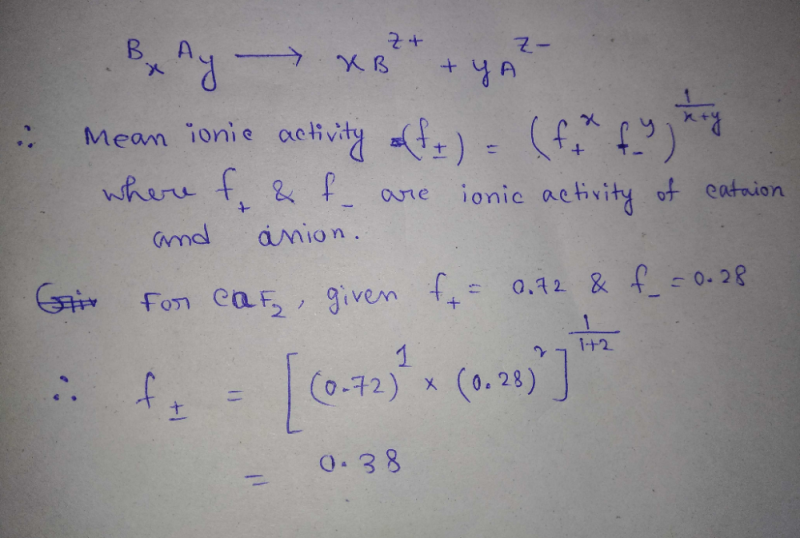 BₓA_y ⟶ xB^{z+} + yA^{z-}
∴ Mean ionic activity (f_±) = (f₊^x f₋^y)^{1/(x+y)}
where f₊ & f₋ are ionic activity of cataion
and anion.
For CaF₂, given f₊ = 0.72 & f₋ = 0.28
∴ f_± = [(0.72)^1 × (0.28)^2]^{1/(1+2)}
= 0.38